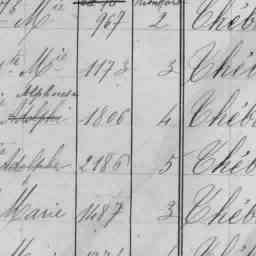 Mie 967 2 Théb
te Mie 1173 3 Théb
Alphonse
Adolphe 1806 4 Théb
Adolphe 2186 5 Théb
Marie 1487 3 Théb